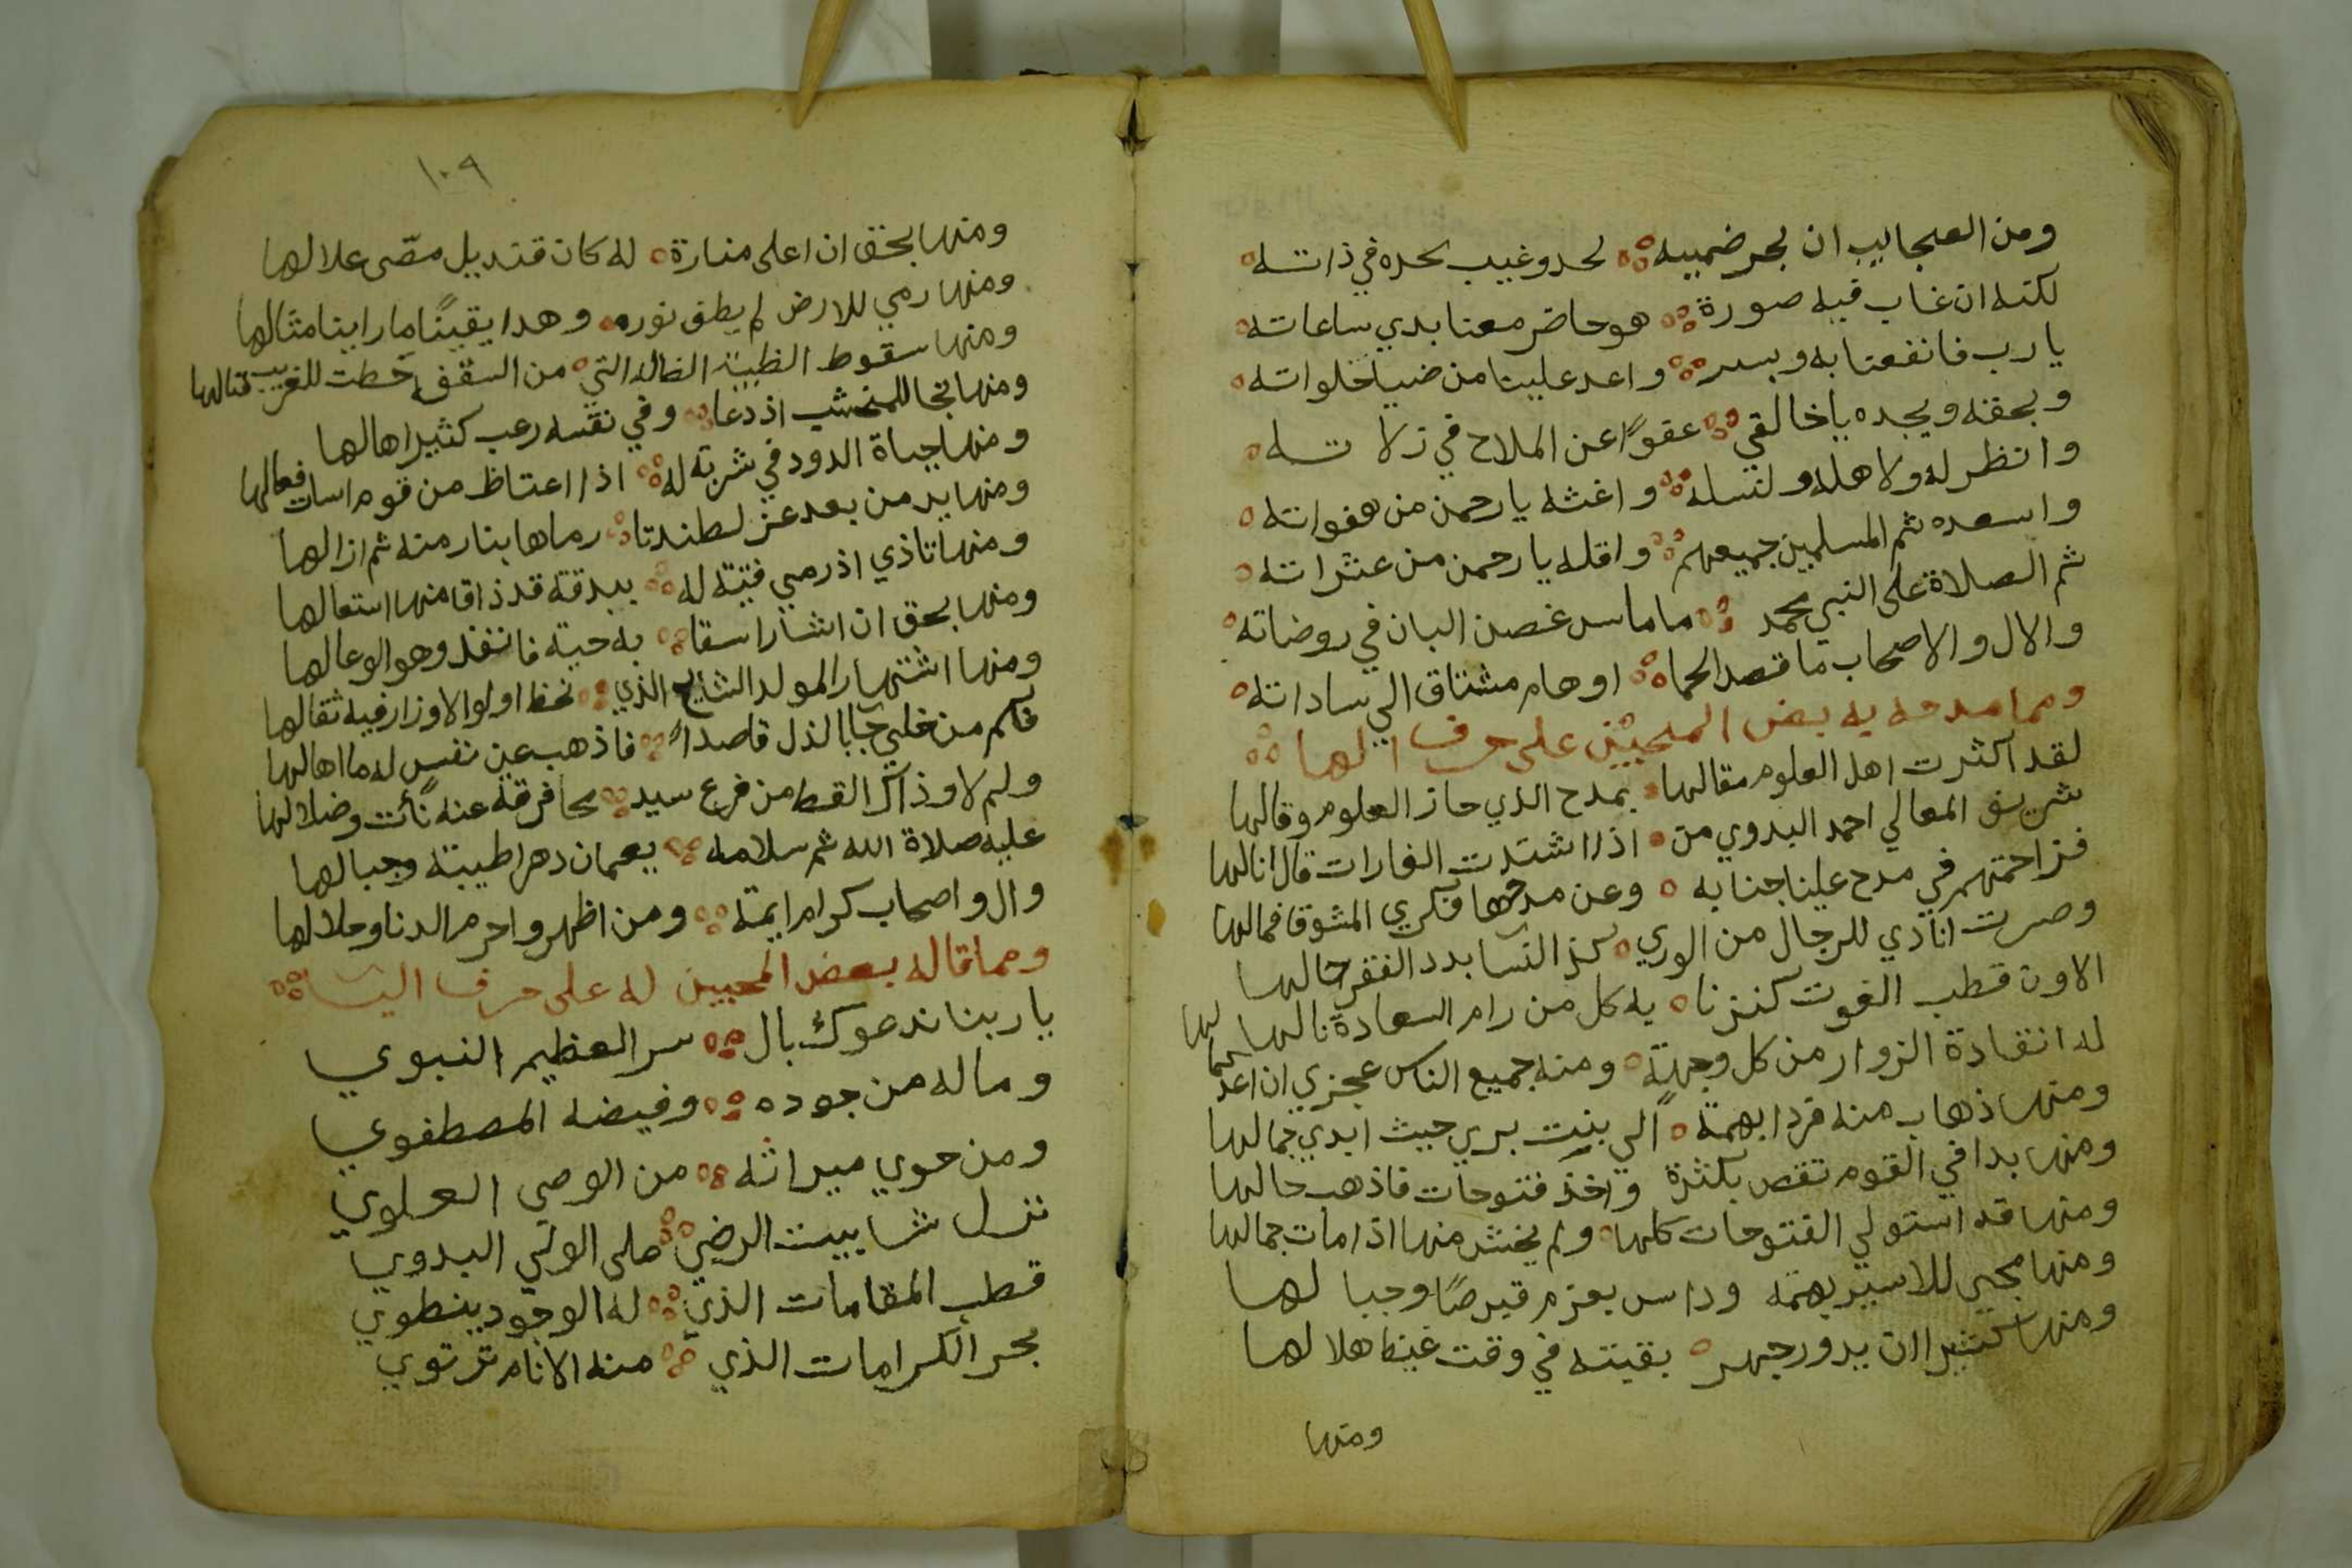 ومن العجايب ان بحر ضميه لحد وغيب بحره في ذاته
لكنه ان غاب فيه صورة هو حاضر معنا بدي ساعاته
يا رب فانفعنا به وبسر واعد علينا من ضيا خلواته
وبحقه وبجده يا خالقي عفوًا عن الملاح في زلاته
وانظر له ولاهله ولنسله واغثه يا رحمن من هفواته
واسعده ثم المسلمين جميعهم واقله يا رحمن من عثراته
ثم الصلاة على النبي محمد ما ماس غصن البان في روضاته
والال والاصحاب ما قصد الحما او هام مشتاق الي ساداته
ومما مدحه به بعض المحبين على حرف الها
لقد اكثرت اهل العلوم مقالها بمدح الذي حاز العلوم وقالها
شريف المعالي احمد البدوي من اذا اشتدت الغارات قال انا لها
فزاحمتهم في مدح علينا جنابه وعن مدحها فكري المشوقا فما لها
وصرت انادي للرجال من الوري كذا النسا بدد الفقر حالها
الا ون قطب الغوث كنز نا به كل من رام السعادة نالها
له انقادة الزوار من كل وجهة ومنه جميع الناس عجزي ان اعد لها
ومنها ذهاب منه فردا بهمة الي بنت بري حيث ابدي جمالها
ومنها بدا في القوم تقص بكثرة واخذ فتوحات فاذهب حالها
ومنها قد استولي الفتوحات كلها ولم يخش منها اذا مات جمالها
ومنها مجي للاسير بهمة وداس بعزم قيرصًا وجبالها
ومنها كثيرا ان يدور جهر بقيته في وقت غيظ هلالها
ومنها
١٠٩
ومنها بخق ان اعلى منارة له كان قنديل مضى علالها
ومنها رمي للارض لم يطف نوره وهدا يقينًا ما راينا مثالها
ومنها سقوط الظبية الضالة التي من السقف حطت للغريب قتالها
ومنها نجا للمنخشب اذ دعا وفي نفسه رعب كثيرا هالها
ومنها حياة الدود في شربة له اذا اغتاظ من قوم اسات فعالها
ومنها يد من بعد عز لطندتا رماها بنار منه ثم ازالها
ومنها تاذي اذ رمي فيته له ببدقة قد ذاق منها استعالها
ومنها بحق ان اشارا سقا به حية فانفذ وهو الوعالها
ومنها اشتهار المولد الشايع الذي تحط اولوا الاوزار فيه ثقالها
فكم من خلي جابا لذل قاصداً فاذهب عن نفس له ما اهالها
ولم لا وذاك القطب من فرع سيد محا فرقة عنه نأت وضلالها
عليه صلاة الله ثم سلامه يعمان دهرا طيبته وجبالها
وال واصحاب كرام ايمة ومن اظهروا حرم الدنا وحلالها
ومما قاله بعض المحبين له على حرف اليا
يا ربنا ندعوك بال سر العظيم النبوي
وما له من جوده وفيضه المصطفوي
ومن حوي ميراثه من الوصي العلوي
تنزل شابيت الرضي على الولي البدوي
قطب المقامات الذي له الوجود ينطوي
بحر الكرامات الذي منه الانام ترتوي